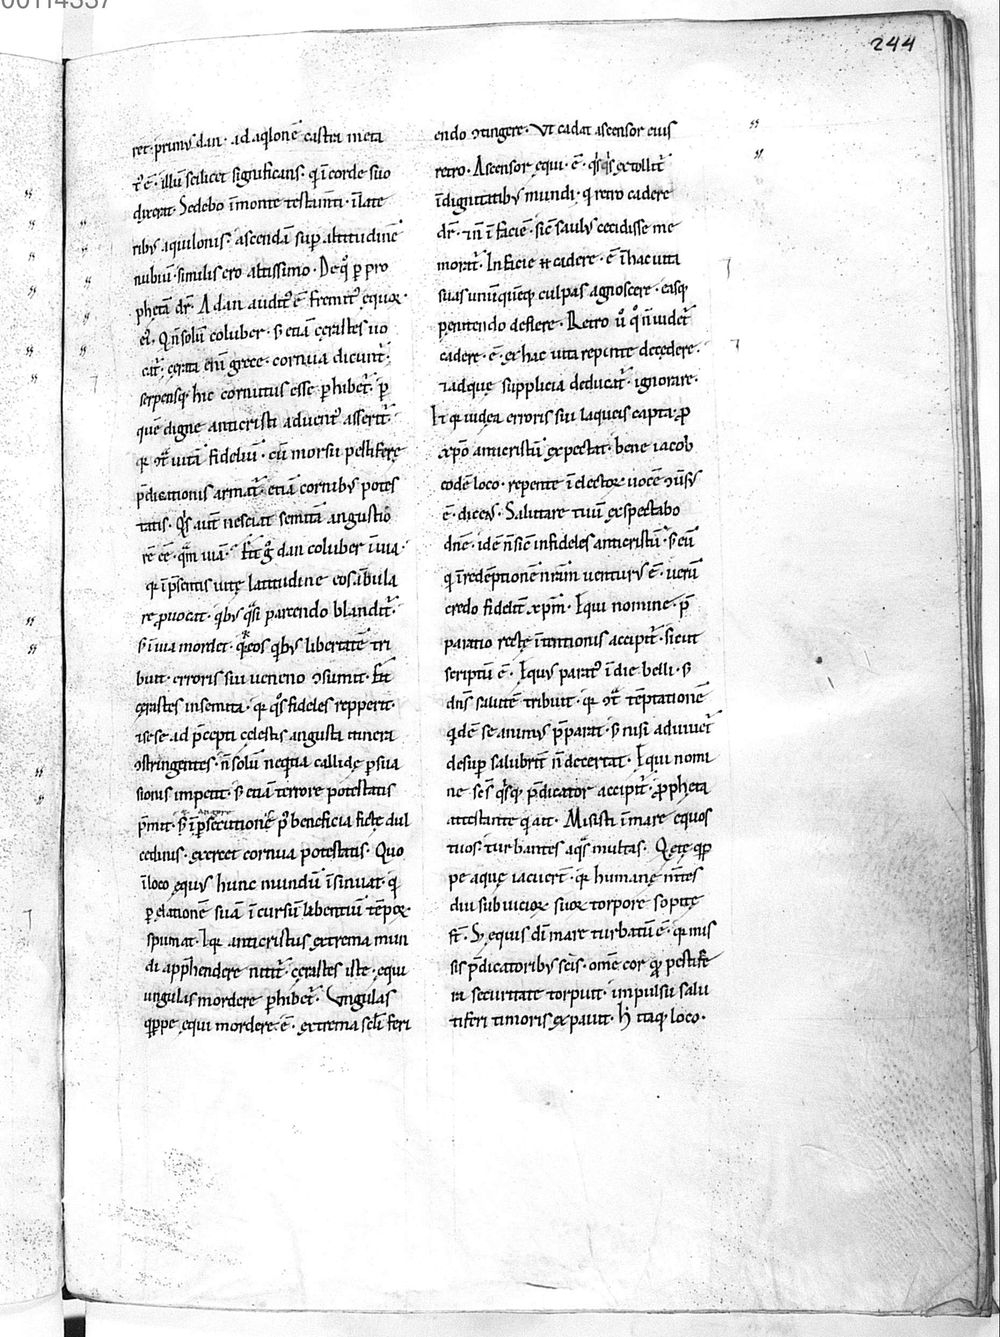 00114337
244
ret· primꝰ dan· ad aq̓lonē castra meta
tᷣ ē· illū scilicet significans· q̇ i corde suo
dixerat· Sedebo ī monte testamti· ī late
ribꝰ aquilonis· ascendā sup̄ altitudinē
nubiū· similis ero altissimo· De q̊ ꝑ pro
phetā dr̄· A dan auditꝰ ē fremitꝰ equoꝝ
eiꝰ· Q n̄ solū coluber· s; etiā cerastes uo
catᷣ· cerata eni grece· cornua dicuntᷣ·
serpensq; hic cornutus esse ꝑhibetᷣ· ꝑ
quē digne anticristi aduentꝰ asseritᷣ·
qꝛ ɔtᷓ uitā fideliū· cū morsu pestifere
p̄dicationis armatᷣ· etiā cornibꝰ potes
tatis· Qͥs aut̄ nesciat semitā angustio
rē ēē· qͣm uiā· Fit gͦ dan coluber ī uia·
qꝛ ī p̄sentis uitę latitudine eos ābula
re ꝓuocat· qͥbꝰ qͣsi parcendo blanditᷣ·
s; ī uia mordet· qꝛ eos qͥbꝰ libertatē tri
buit· erroris sui ueneno ɔsumit· Fit
cerastes in semita· qꝛ qͦs fideles repperit·
⁊ sese ad p̄cepti celestis angusta itinera
ɔstringentes· n̄ solū neq̇tia callidę ꝑsua
sionis impetit· s; etiā terrore potestatis
p̄mit· s; ī ꝑsecutionē pꝰ beneficia fictę dul
cedinis· exercet cornua potestatis· Quo
ī loco equꝰ hunc mundū īsinuat· q̇
ꝑ elationē suā ī cursū labentiū tēpoꝝ
spumat· Et qꝛ anticristus extrema mun
di app̄hendere nititᷣ· cerastes iste· equi
ungulas mordere ꝑhibetᷣ· Ungulas
q̇ppe equi mordere· ē· extrema sclī feri
endo ɔtingere· Vt cadat ascensor eius
retro· Ascensor equi· ē· qͥsqͥs extollitᷣ
ī dignitatibꝰ mundi· q̇ retro cadere
dr̄· ⁊ n̄ ī faciē· sic saulꝰ cecidisse me
moratᷣ· In facie n̄ cadere· ē ī hac uita
suas unūquēq; culpas agnoscere· easq;
penitendo deflere· Retro ū q̊ n̄ uidetᷣ
cadere· ē· ex hac uita repente decedere·
⁊ ad que supplicia ducatᷣ· ignorare·
Et qꝛ iudea erroris sui laqueis capta· ꝓ
xp̄o anticristū expectat· bene iacob
eodē loco· repente ī electoꝝ uocē ɔuersꝰ
ē· dicens· Salutare tuū exspectabo
dn̄e· id ē n̄ sic infideles anticristū· s; eū
q̇ ī redēptionē nr̄am uenturꝰ ē· uerū
credo fidelit̄ xp̄m· Equi nomine· p̄
paratio recte ītentionis accipitᷣ· sicut
scriptū ē· Equꝰ paratꝰ ī die belli· s;
dn̄s salutē tribuit· qꝛ ɔtᷓ tēptationē
q̇dē se animꝰ p̄parat· s; nisi adiuuetᷣ
desup̄ salubrit̄ n̄ decertat· Equi nomi
ne scs̄ qͥsq; p̄dicator accipitᷣ· ꝓpheta
attestante q̇ ait· Misisti ī mare equos
tuos turbantes aqͣs multas· Qete q̇p
pe aque iacuert̄· qꝛ humanę mtes
diu sub uicioꝝ suoꝝ torpore sopite
st̄· S; equis dī mare turbatū ē· qꝛ mis
sis p̄dicatoribꝰ scis· ome cor qd̄ pestife
ra securitate torpuit· impulsu salu
tiferi timoris expauit· h̄ itaq; loco·